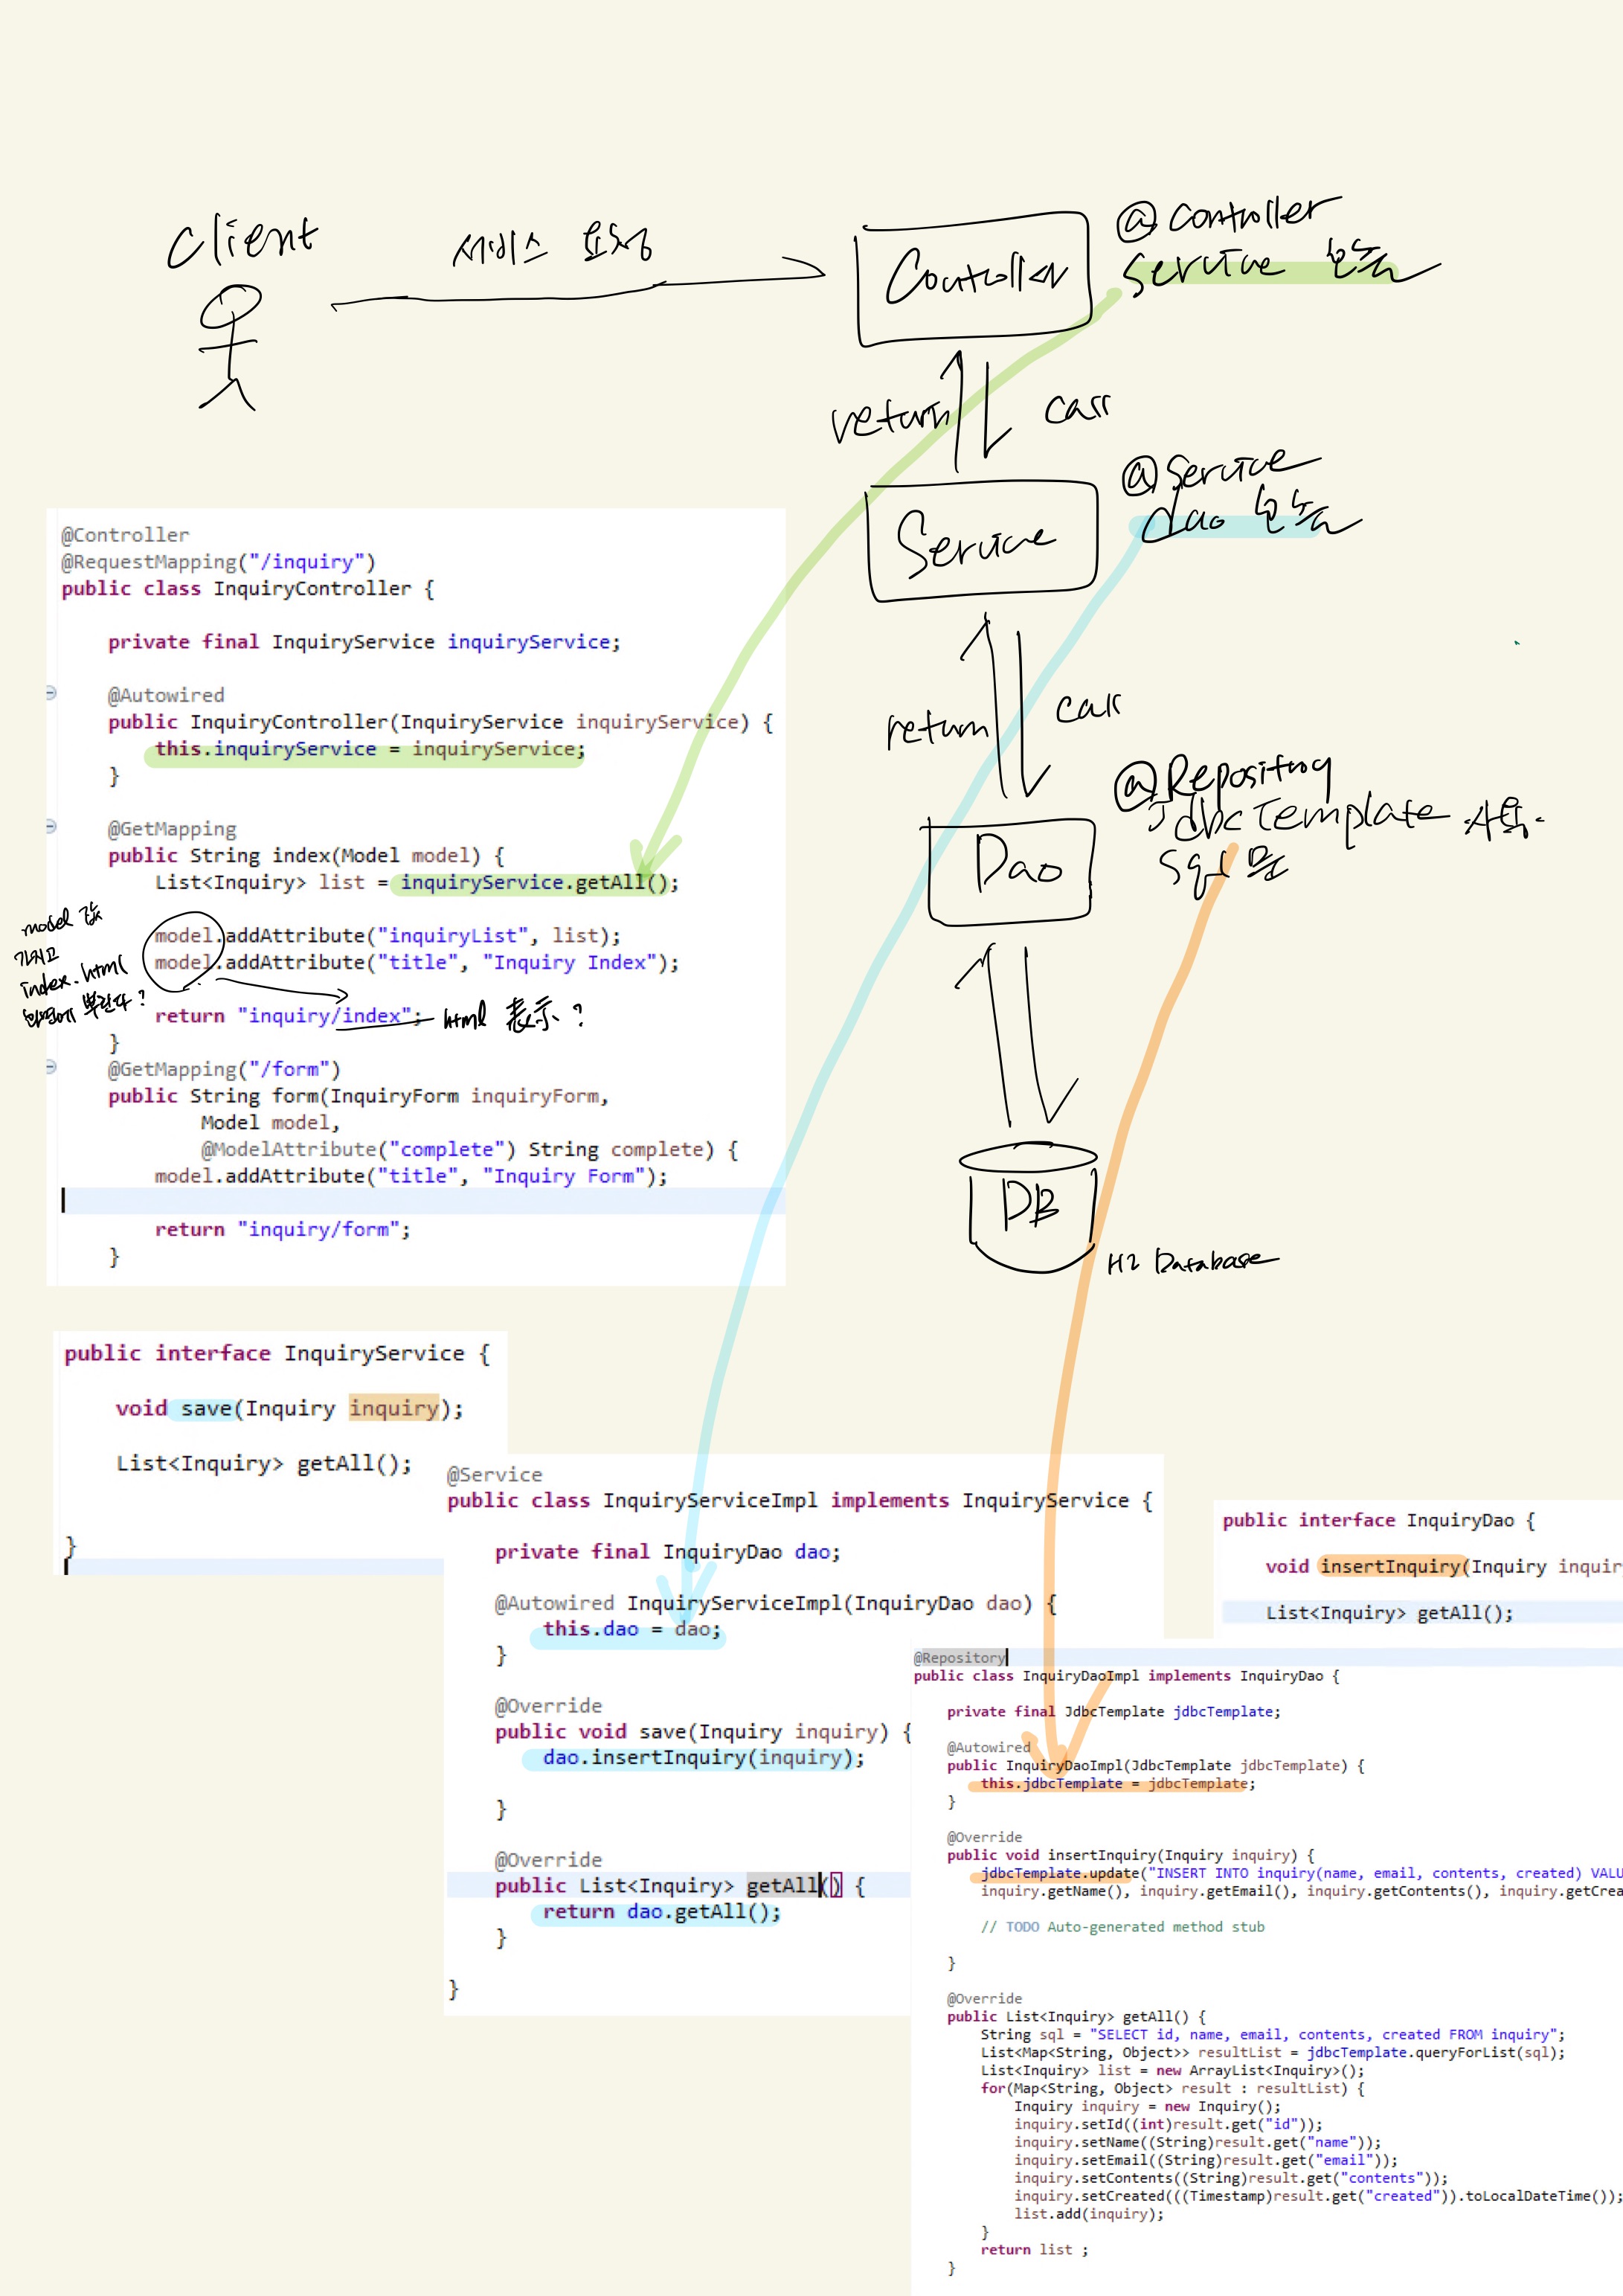 client
서비스 요청
Controller
@controller
service 호출
return
call
Service
@Service
dao 호출
return
call
Dao
@Repository
JdbcTemplate 사용.
sql 문
DB
H2 Database
@Controller
@RequestMapping("/inquiry")
public class InquiryController {
private final InquiryService inquiryService;
@Autowired
public InquiryController(InquiryService inquiryService) {
this.inquiryService = inquiryService;
}
@GetMapping
public String index(Model model) {
List<Inquiry> list = inquiryService.getAll();
model.addAttribute("inquiryList", list);
model.addAttribute("title", "Inquiry Index");
return "inquiry/index";
}
model 값
가지고
index.html
화면에 뿌린다?
html 表示?
@GetMapping("/form")
public String form(InquiryForm inquiryForm,
Model model,
@ModelAttribute("complete") String complete) {
model.addAttribute("title", "Inquiry Form");
return "inquiry/form";
}
public interface InquiryService {
void save(Inquiry inquiry);
List<Inquiry> getAll();
}
@Service
public class InquiryServiceImpl implements InquiryService {
private final InquiryDao dao;
@Autowired InquiryServiceImpl(InquiryDao dao) {
this.dao = dao;
}
@Override
public void save(Inquiry inquiry) {
dao.insertInquiry(inquiry);
}
@Override
public List<Inquiry> getAll() {
return dao.getAll();
}
}
public interface InquiryDao {
void insertInquiry(Inquiry inquir
List<Inquiry> getAll();
@Repository
public class InquiryDaoImpl implements InquiryDao {
private final JdbcTemplate jdbcTemplate;
@Autowired
public InquiryDaoImpl(JdbcTemplate jdbcTemplate) {
this.jdbcTemplate = jdbcTemplate;
}
@Override
public void insertInquiry(Inquiry inquiry) {
jdbcTemplate.update("INSERT INTO inquiry(name, email, contents, created) VALU
inquiry.getName(), inquiry.getEmail(), inquiry.getContents(), inquiry.getCrea
// TODO Auto-generated method stub
}
@Override
public List<Inquiry> getAll() {
String sql = "SELECT id, name, email, contents, created FROM inquiry";
List<Map<String, Object>> resultList = jdbcTemplate.queryForList(sql);
List<Inquiry> list = new ArrayList<Inquiry>();
for(Map<String, Object> result : resultList) {
Inquiry inquiry = new Inquiry();
inquiry.setId((int)result.get("id"));
inquiry.setName((String)result.get("name"));
inquiry.setEmail((String)result.get("email"));
inquiry.setContents((String)result.get("contents"));
inquiry.setCreated(((Timestamp)result.get("created")).toLocalDateTime());
list.add(inquiry);
}
return list ;
}